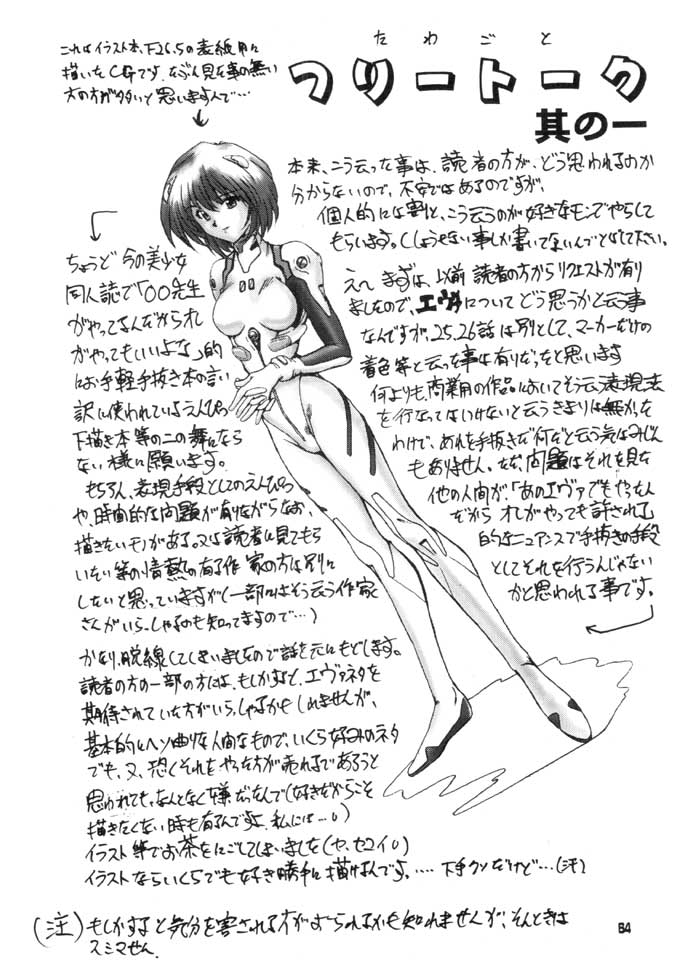 たわごと
フリートーク
其の一
これはイラスト本、下26.5の表紙用に
描いたCGです。たぶん見た事の無い
方の方が多いと思いますんで…
本来、こう云った事は、読者の方が、どう思われるのか
分からないので、不安ではあるのですが、
個人的には割と、こう云うのが好きなモンでやらして
もらいます。(しょうもない事しか書いてないんでとばして下さい。
えー まずは、以前 読者の方からリクエストが有り
ましたので、エヴァについてどう思うかと云う事
なんですが、25,26話は別として、マーカーだけの
着色等と云った事は有りだったと思います
何よりも、商業用の作品においてそう云う表現法
を行なってはいけないと云うきまりは無かった
わけで、あれを手抜きだ何だと云う気はみじん
もありません。ただ、問題はそれを見た
他の人間が、「あのエヴァでもやったん
だから オレがやっても許される」
的なニュアンスで手抜きの手段
としてそれを行うんじゃない
かと思われる事です。
ちょうど今の美少女
同人誌で「○○先生
がやってるんだからオレ
がやってもいいよな」的
にお手軽手抜き本の言い
訳に使われているえんぴつ
下描き本等の二の舞にならない
ない様に願います。
もちろん、表現手段としてのえんぴつ
や、時間的な問題が有りながらなお、
描きたいモノがある。又は読者に見てもら
いたい等の情熱の有る作家の方は別に
しないと思っていますが(一部にはそう云う作家
さんがいらっしゃるのも知ってますので…)
かなり脱線してしまいましたので話を元にもどします。
読者の方の一部の方には、もしかすると、エヴァネタを
期待されていた方がいらっしゃるかもしれませんが、
基本的にヘソ曲りな人間なもので、いくら好みのネタ
でも、又、恐くそれをやった方が売れるであろうと
思われても、なんとなく嫌だったんで(好きだからこそ
描きたくない時も有るんですよ、私には…。)
イラスト等でお茶をにごしてしまいました(ヤ、セコイ。)
イラストならいくらでも好き勝手に描けるんです。…. 下手クソだけど…(汗)
(注) もしかすると気分を害される方がおられるかも知れませんが、そんときは
スミマせん
64